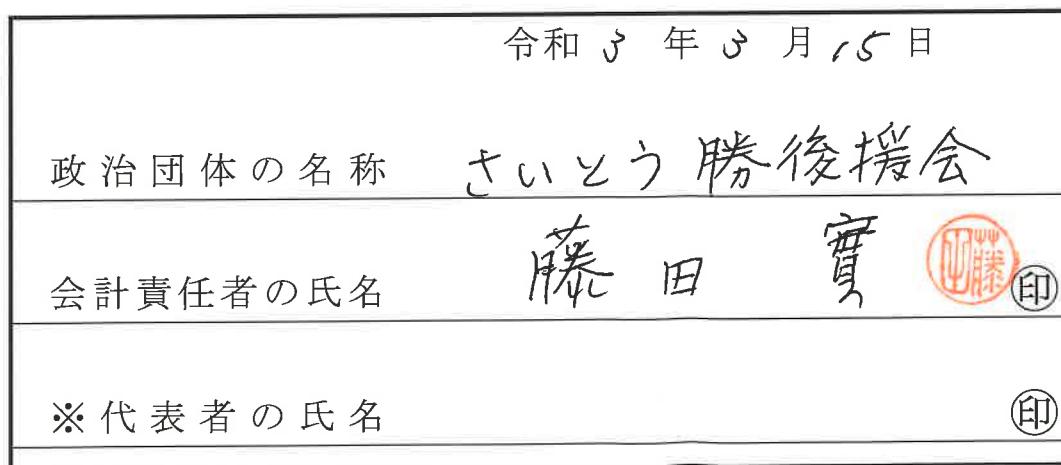 令和3年3月15日
政治団体の名称 さいとう勝後援会
会計責任者の氏名 藤田 實 藤田 印
※代表者の氏名 印